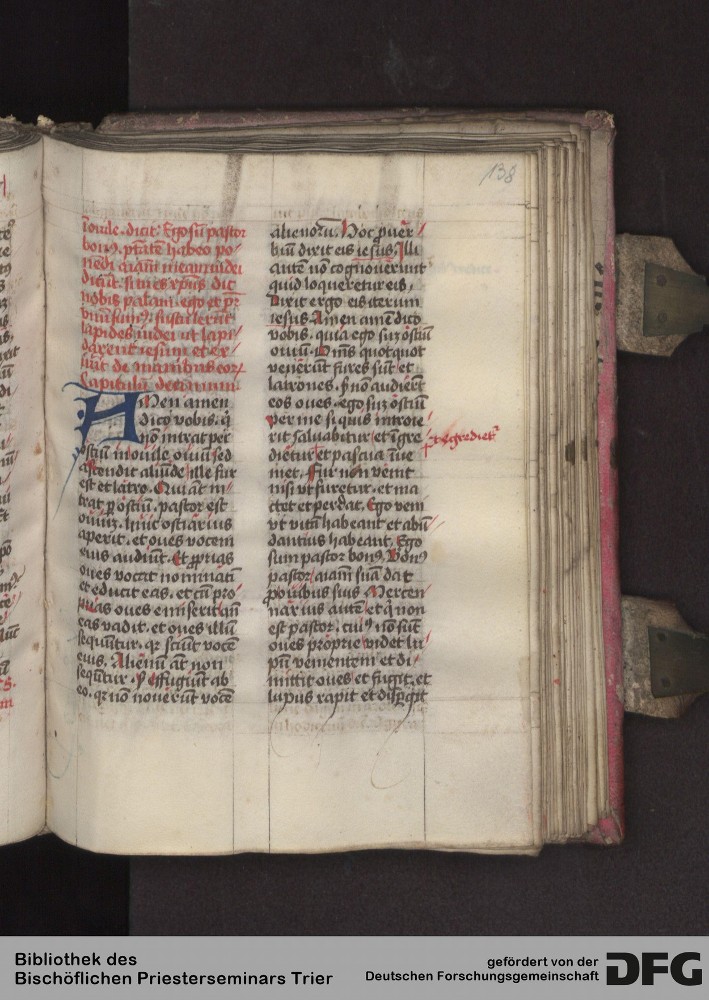 138
ĩ ouile. dicit. Ego sũ pastor
bonꝰ. ptãtẽ habeo po⸗
nẽdi aĩam meam iudei
dicũt. si tu es xp̃us. dic
nobis palam. ego et pr̃
vnũ sumꝰ. sustulerũt
lapides iudei ut lapi⸗
darent iesum et ex⸗
iuit de manibus eorꝝ
Capitulũ decimum
AMen amen
dico vobis. q̃
nõ intrat per
ostiũ in ouile ouiũ sed
ascendit aliũde ille fur
est et latro. Qui aũt in⸗
trat ꝑ ostiũ. pastor est
ouiuꝫ. huic ostiarius
aperit. et oues vocem
eius audiũt. Et ꝓprias
oues vocat nominati
et educit eas. et cũ pro⸗
prias oues emiserit añ
eas vadit. et oues illũ
sequũtur. qꝛ sciũt vocẽ
eius. Alienũ aũt non
sequũtur. sꝫ effugiũt ab
eo. qꝛ non nouerũt vocẽ
alienorũ. Hoc ꝓuer⸗
biũ dixit eis iesus. Illi
autẽ nõ cognouerunt
quid loqueretur eis.
Dixit ergo eis iterum
iesus. Amen amẽ dico
vobis. quia ego suꝫ ostiũ
ouiũ. Om̃s quotquot
venerũt fures sũt et
latrones. sꝫ nõ audierũt
eos oues. ego suꝫ ostiũ
per me si quis introie⸗
rit saluabitur et ĩgre⸗
dietur et pascua inue⸗
et egredietᷣ
niet. Fur non venit
nisi vt furetur. et ma⸗
ctet et perdat. Ego veni
vt vitã habeant et abũ⸗
dantius habeant. Ego
sum pastor bonꝰ. Bonꝰ
pastor aĩam suã dat
ꝓ ouibus suis Mercen⸗
narius autẽ et q̃ non
est pastor. cuiꝰ nõ sũt
oues proprie videt lu⸗
pũ venientem et di⸗
mittit oues et fugit. et
lupus rapit et disꝑgit
Bibliothek des
Bischöflichen Priesterseminars Trier
gefördert von der
Deutschen Forschungsgemeinschaft
DFG